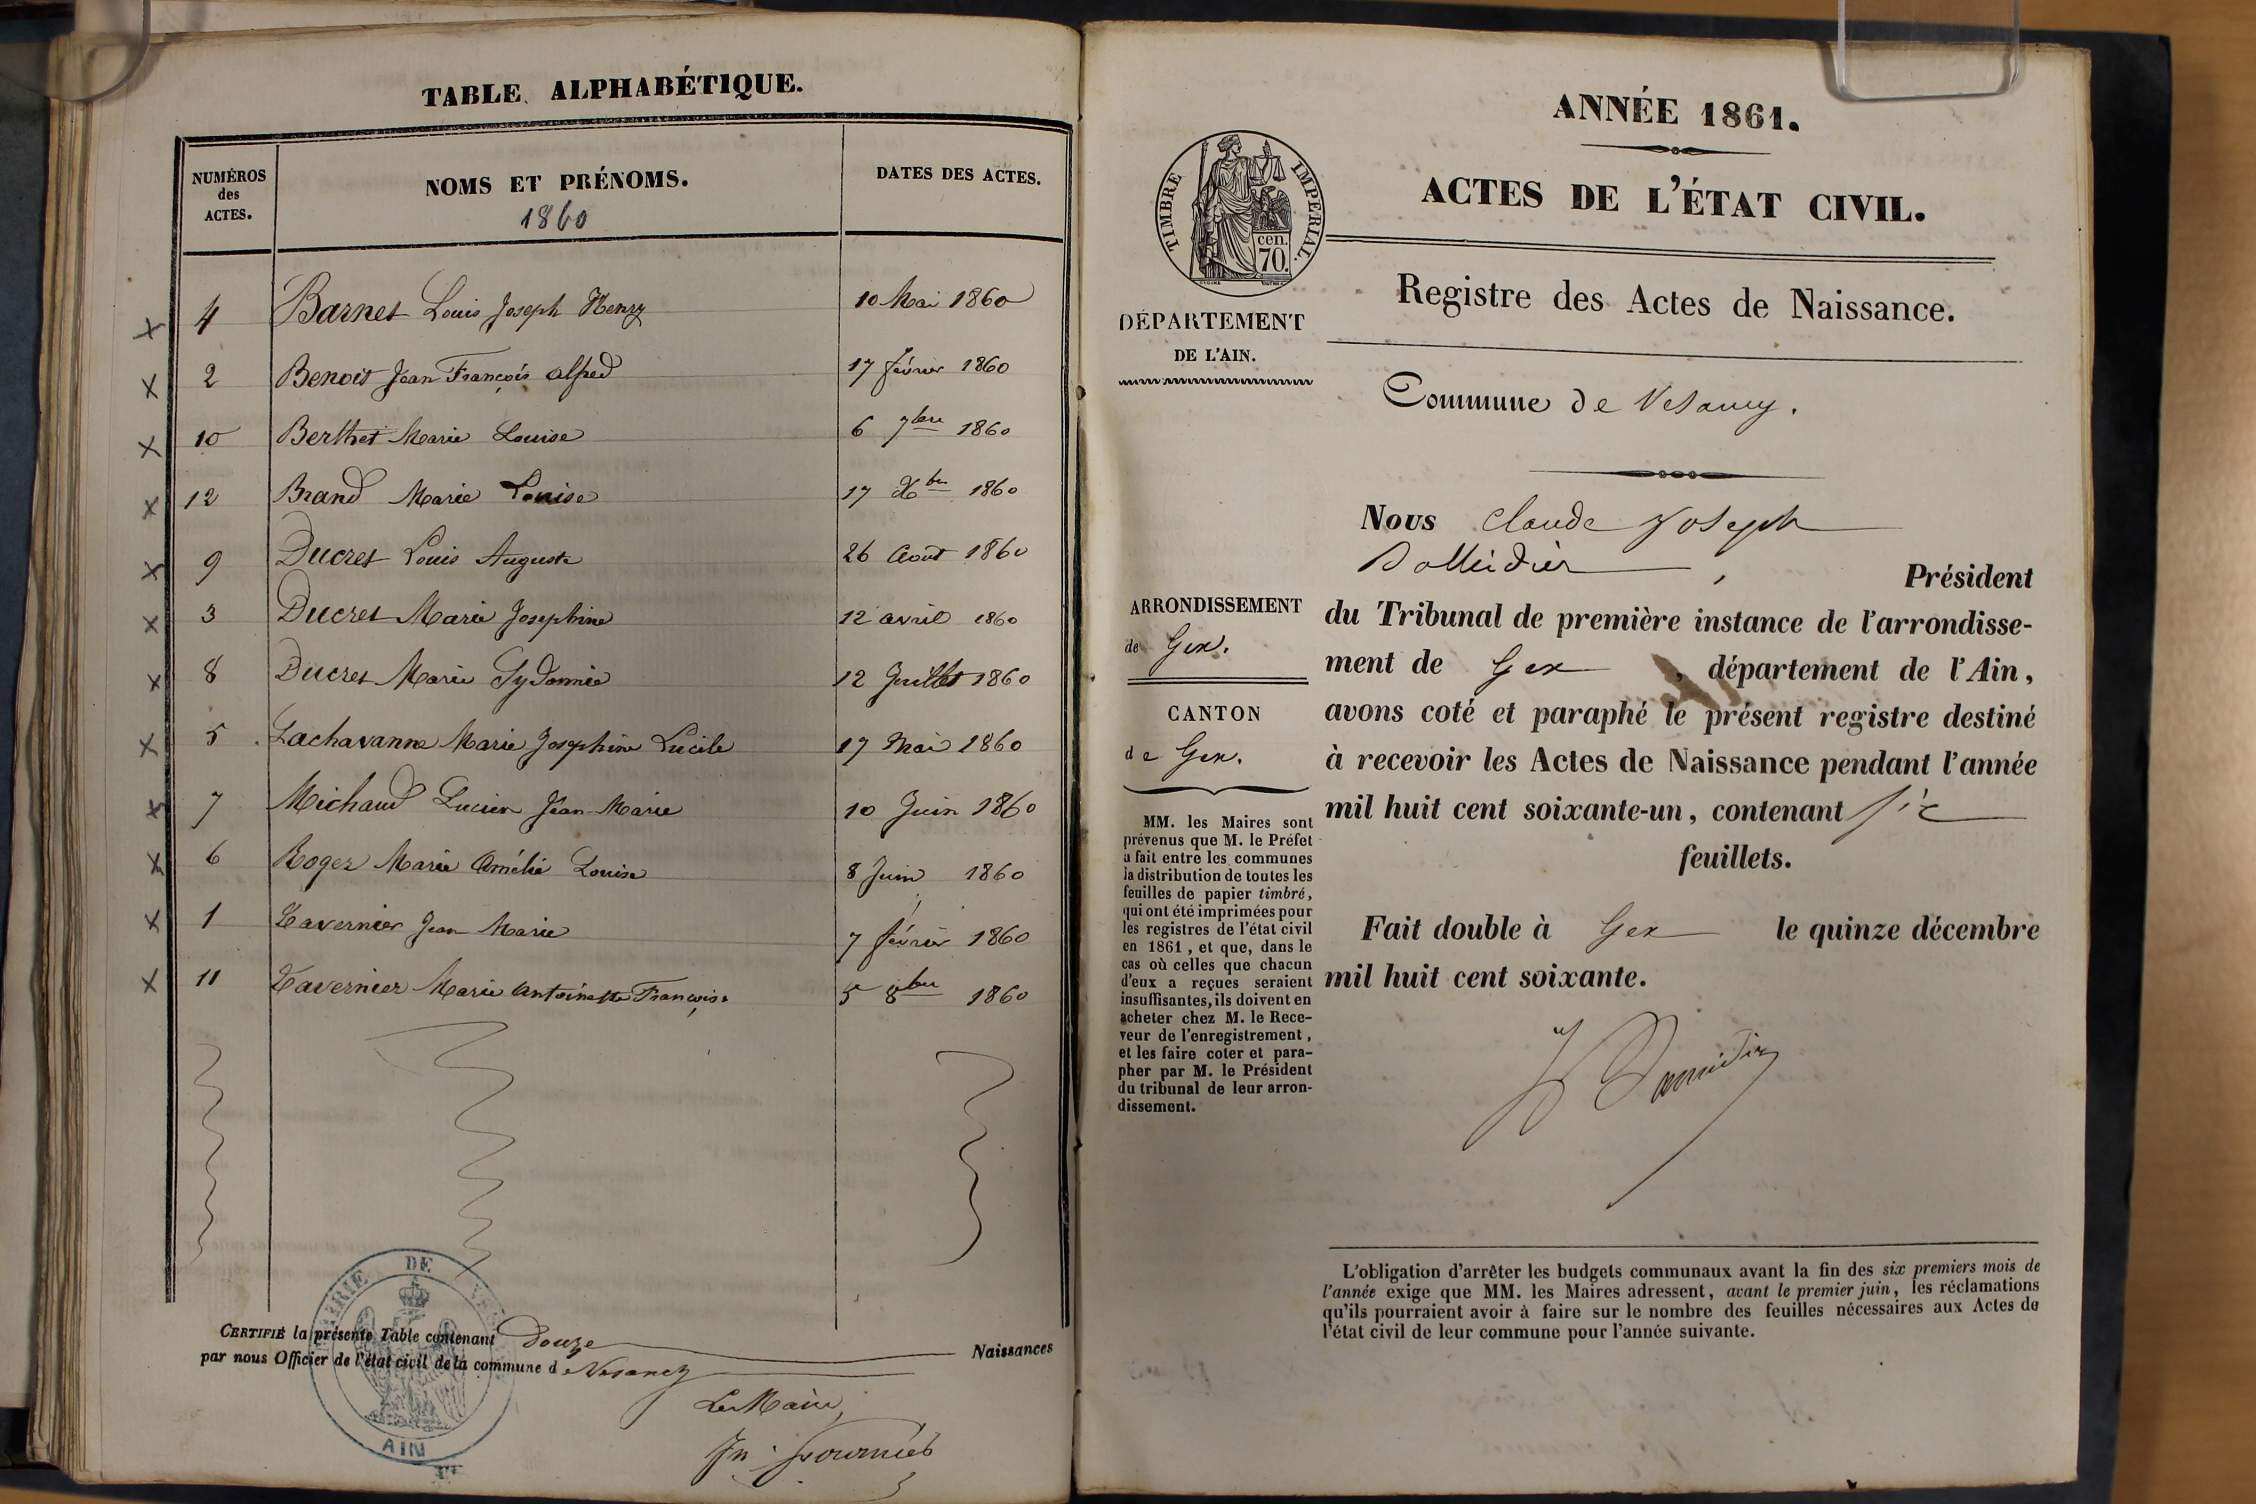 TABLE ALPHABÉTIQUE.
NUMÉROS des ACTES.
NOMS ET PRÉNOMS.
1860
DATES DES ACTES.
4 Barnet Louis Joseph Henry 10 Mai 1860
2 Benoit Jean François alfred 17 février 1860
10 Berthet Marie Louise 6 7bre 1860
12 Brand Marie Louise 17 Xbre 1860
9 Ducret Louis Auguste 26 Août 1860
3 Ducret Marie Josephine 12 avril 1860
8 Ducret Marie Sydonnie 12 Juillet 1860
5 Lachavanne Marie Josephine Lucile 17 Mai 1860
7 Michaud Lucien Jean Marie 10 Juin 1860
6 Roger Marie Amélie Louise 8 Juin 1860
1 Tavernier Jean Marie 7 février 1860
11 Tavernier Marie Antoinette Françoise 5 8bre 1860
CERTIFIÉ la présente Table contenant Douze Naissances
par nous Officier de l'état civil de la commune d e Vesancy
Le Maire,
Jn. Fournier
MAIRIE DE
AIN
ANNÉE 1861.
TIMBRE IMPÉRIAL.
cen.
70.
ACTES DE L'ÉTAT CIVIL.
Registre des Actes de Naissance.
DÉPARTEMENT
DE L'AIN.
Commune de Vesancy.
Nous Claude Joseph
Président
du Tribunal de première instance de l'arrondisse-
ment de Gex, département de l'Ain,
avons coté et paraphé le présent registre destiné
à recevoir les Actes de Naissance pendant l'année
mil huit cent soixante-un, contenant six
feuillets.
Fait double à Gex le quinze décembre
mil huit cent soixante.
ARRONDISSEMENT
de Gex.
CANTON
de Gex.
MM. les Maires sont
prévenus que M. le Préfet
a fait entre les communes
la distribution de toutes les
feuilles de papier timbré,
qui ont été imprimées pour
les registres de l'état civil
en 1861, et que, dans le
cas où celles que chacun
d'eux a reçues seraient
insuffisantes, ils doivent en
acheter chez M. le Rece-
veur de l'enregistrement,
et les faire coter et para-
pher par M. le Président
du tribunal de leur arron-
dissement.
L'obligation d'arrêter les budgets communaux avant la fin des six premiers mois de
l'année exige que MM. les Maires adressent, avant le premier juin, les réclamations
qu'ils pourraient avoir à faire sur le nombre des feuilles nécessaires aux Actes de
l'état civil de leur commune pour l'année suivante.